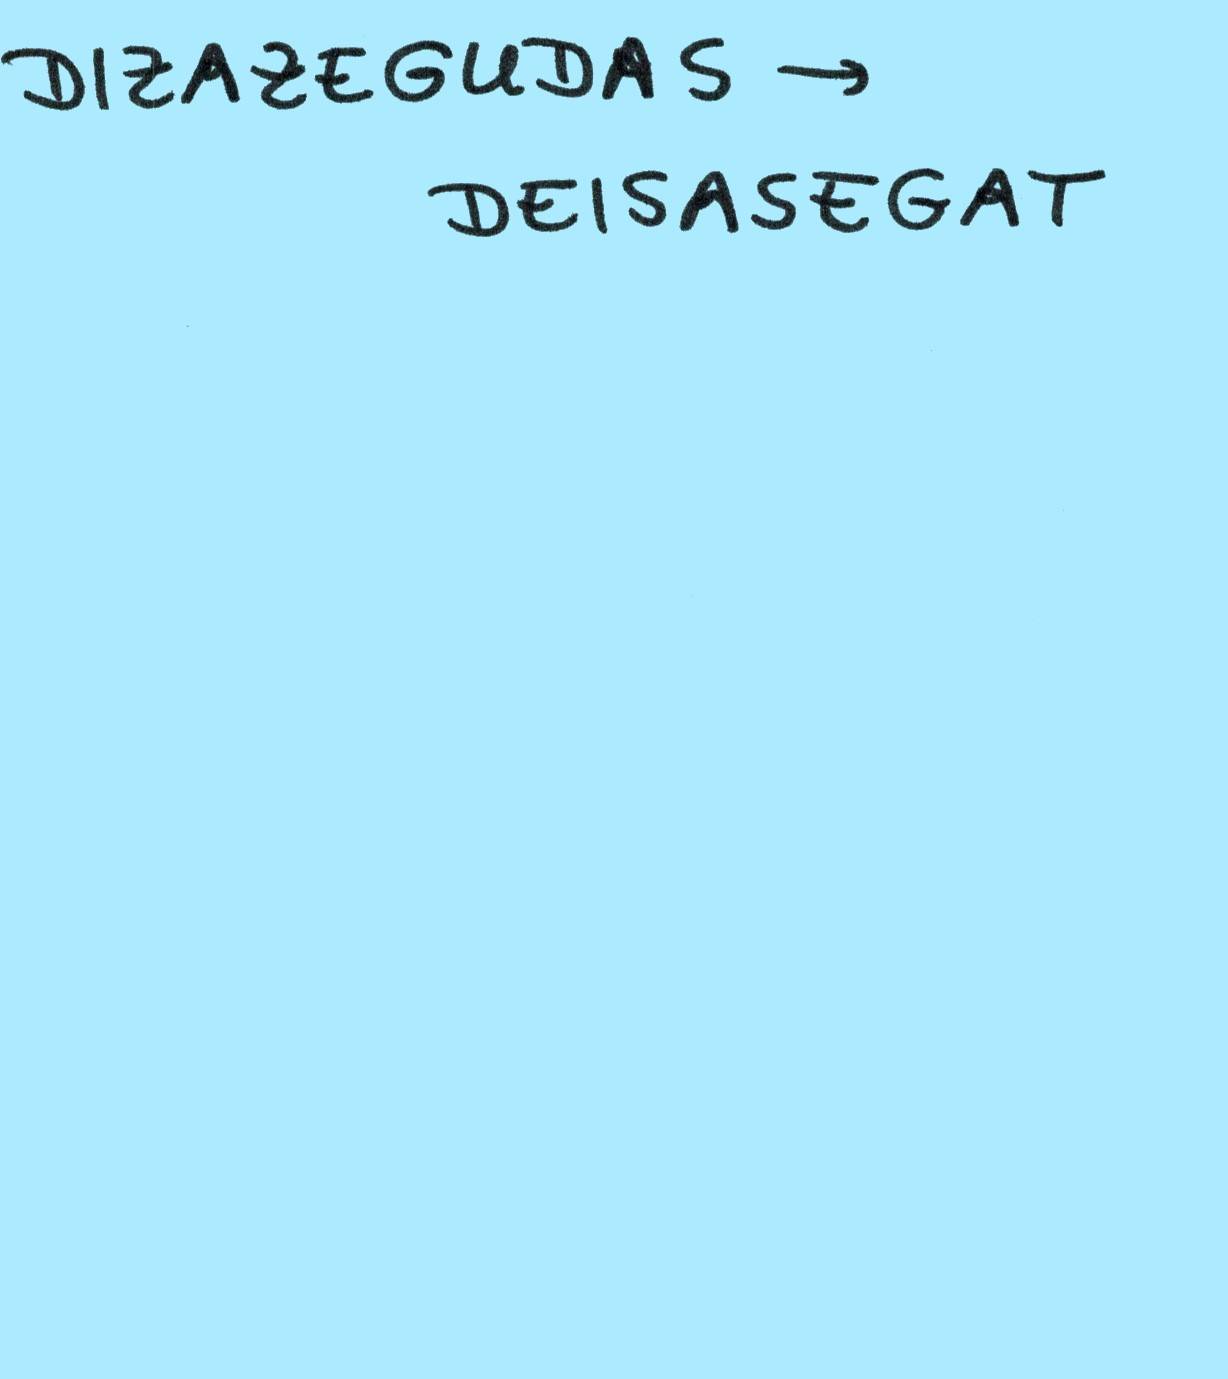 DIZAZEGUDAS →
DEISASEGAT